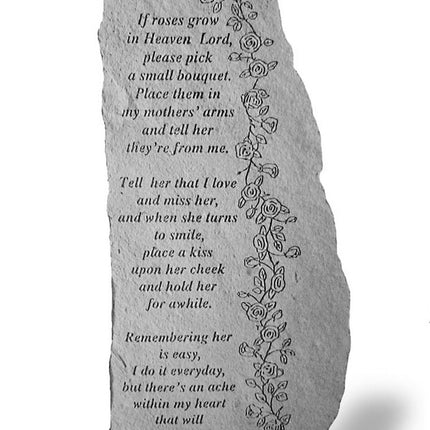 If roses grow
in Heaven Lord,
please pick
a small bouquet.
Place them in
my mothers' arms
and tell her
they're from me.
Tell her that I love
and miss her,
and when she turns
to smile,
place a kiss
upon her cheek
and hold her
for awhile.
Remembering her
is easy,
I do it everyday,
but there's an ache
within my heart
that will